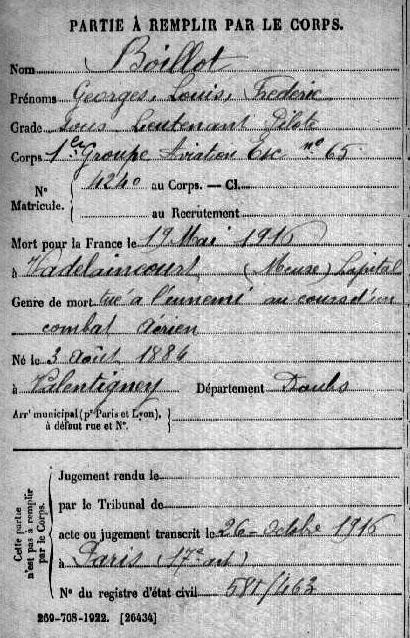 PARTIE À REMPLIR PAR LE CORPS.
Nom Boillot
Prénoms Georges, Louis, Frederic
Grade Sous Lieutenant Pilote
Corps 1er Groupe Aviation Esc nº 65
Nº Matricule. { 4240 au Corps. — Cl.
au Recrutement
Mort pour la France le 19 Mai 1916
à Vadelaincourt (Meuse) hôpital
Genre de mort tué à l'ennemi au cours d'un
combat aérien
Né le 3 Août 1884
à Valentigney Département Doubs
Arrt municipal (pr Paris et Lyon), }
à défaut rue et Nº.
Cette partie n'est pas à remplir par le Corps.
Jugement rendu le
par le Tribunal de
acte ou jugement transcrit le 26 Octobre 1916
à Paris (17e art)
Nº du registre d'état civil 581/463
269-708-1922. [26434]